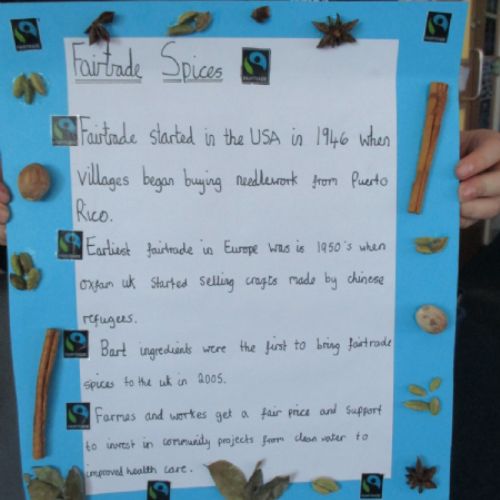 Fairtrade Spices
Fairtrade started in the USA in 1946 when
villages began buying needlework from Puerto
Rico.
Earliest fairtrade in Europe was is 1950's when
oxfam uk started selling crafts made by chinese
refugees.
Bart ingredients were the first to bring fairtrade
spices to the uk in 2005.
Farmes and workes get a fair price and support
to invest in community projects from clean water to
improved health care.